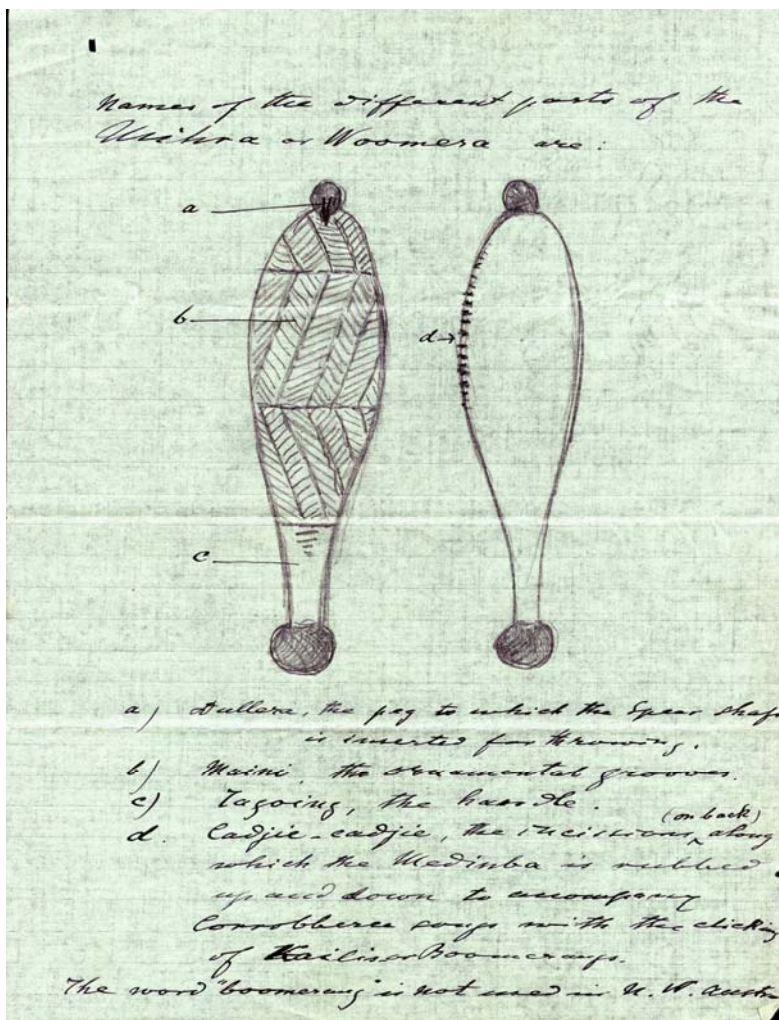 Names of the different parts of the
or Woomera are:
a
b
d
c
a) Dullera, the peg to which the Spear shaf
is inserted for throwing.
b) Maini, the ornamental grooves.
c) Tagoing, the handle.
(on back)
d. Cadjie-cadjie, the incisions along
which the Medinba is rubbed
up and down to accompany
Corrobberee songs with the clicking
of Boomerangs.
The word "boomerang" is not used in N. W. Austra